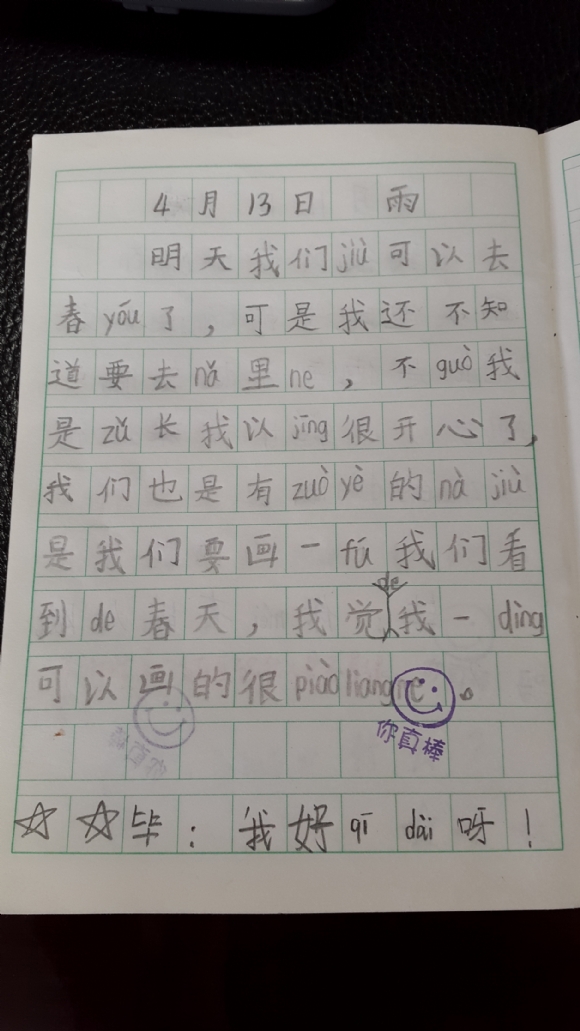 4月13日 雨
明天我们jiù可以去
春yóu了，可是我还不知
道要去nǎ里ne，不guò我
是zǔ长我以jīng很开心了，
我们也是有zuòyè的nàjiù
是我们要画一fú我们看
到de春天，我觉de我一dìng
可以画的很piàoliangne。
你真棒
☆☆毕：我好qī dài呀！